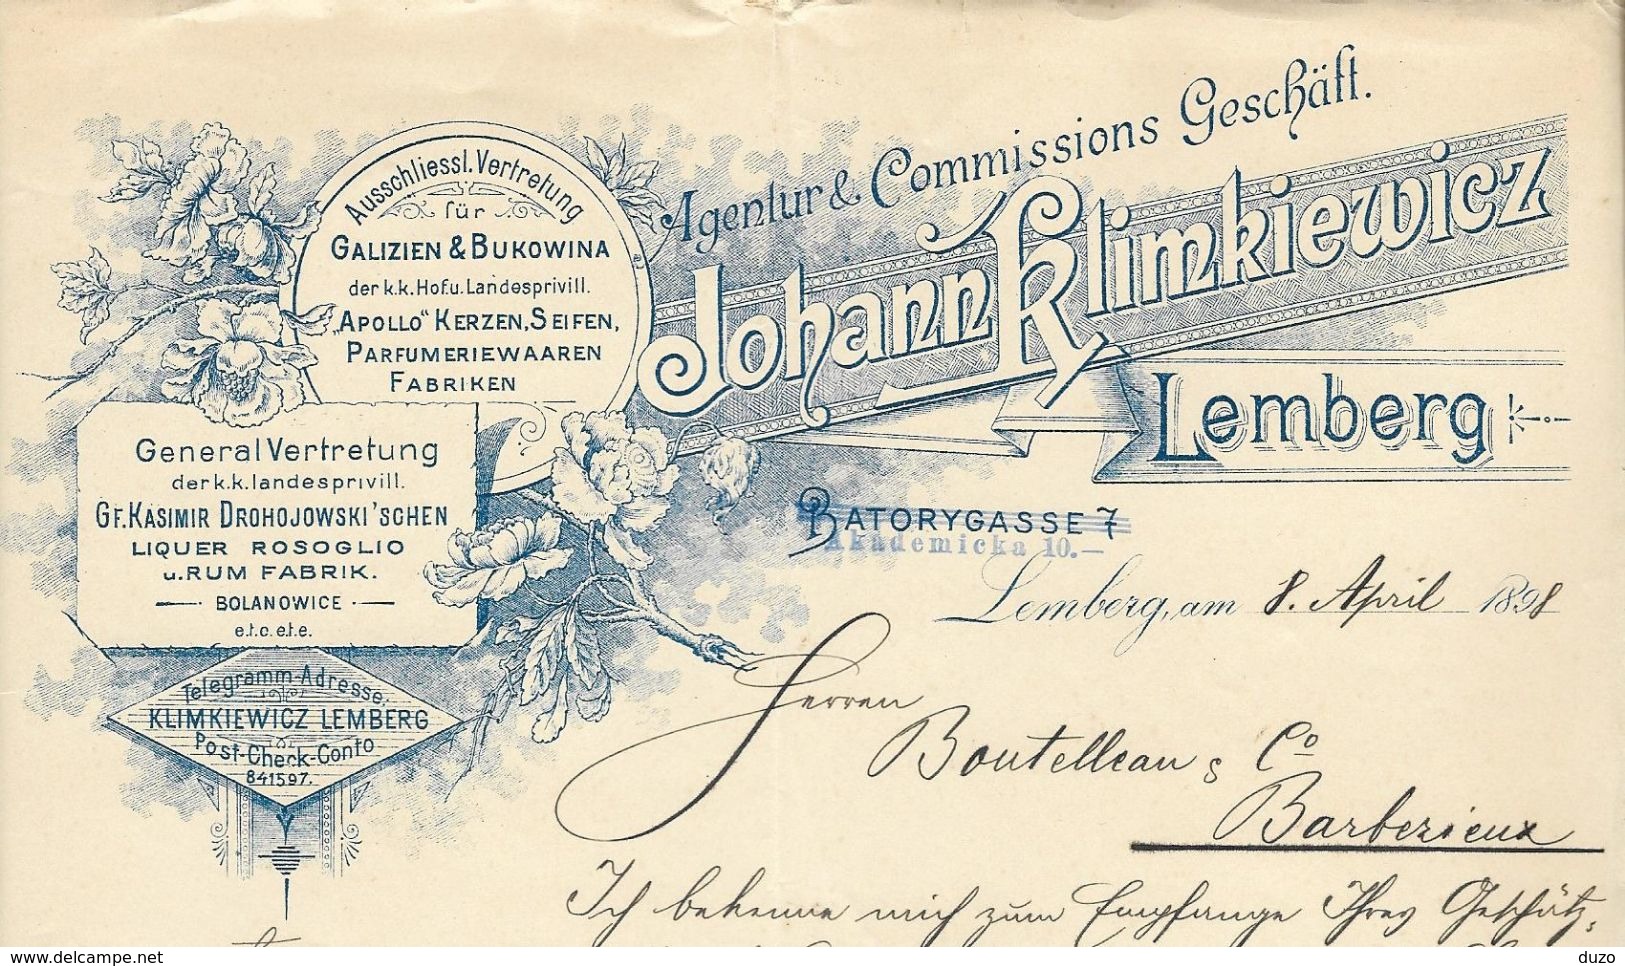 Agentur & Commissions Geschäft.
Johann Klimkiewicz
Lemberg
Ausschliessl. Vertretung
für
GALIZIEN & BUKOWINA
der k.k. Hof.u. Landesprivill.
„APOLLO“ KERZEN, SEIFEN,
PARFUMERIEWAAREN
FABRIKEN
General Vertretung
der k.k. landesprivill.
GF. KASIMIR DROHOJOWSKI'SCHEN
LIQUER ROSOGLIO
u. RUM FABRIK.
BOLANOWICE
e.t.c. e.t.e.
Telegramm-Adresse.
KLIMKIEWICZ LEMBERG
Post-Check-Conto
841597.
BATORYGASSE 7
Akademicka 10.—
Lemberg, am 8. April 1898
Herren
Boutelleau & Co
Barbezieux
Ich bekenne mich zum Empfange Ihres Geschätz-
www.delcampe.net
duzo